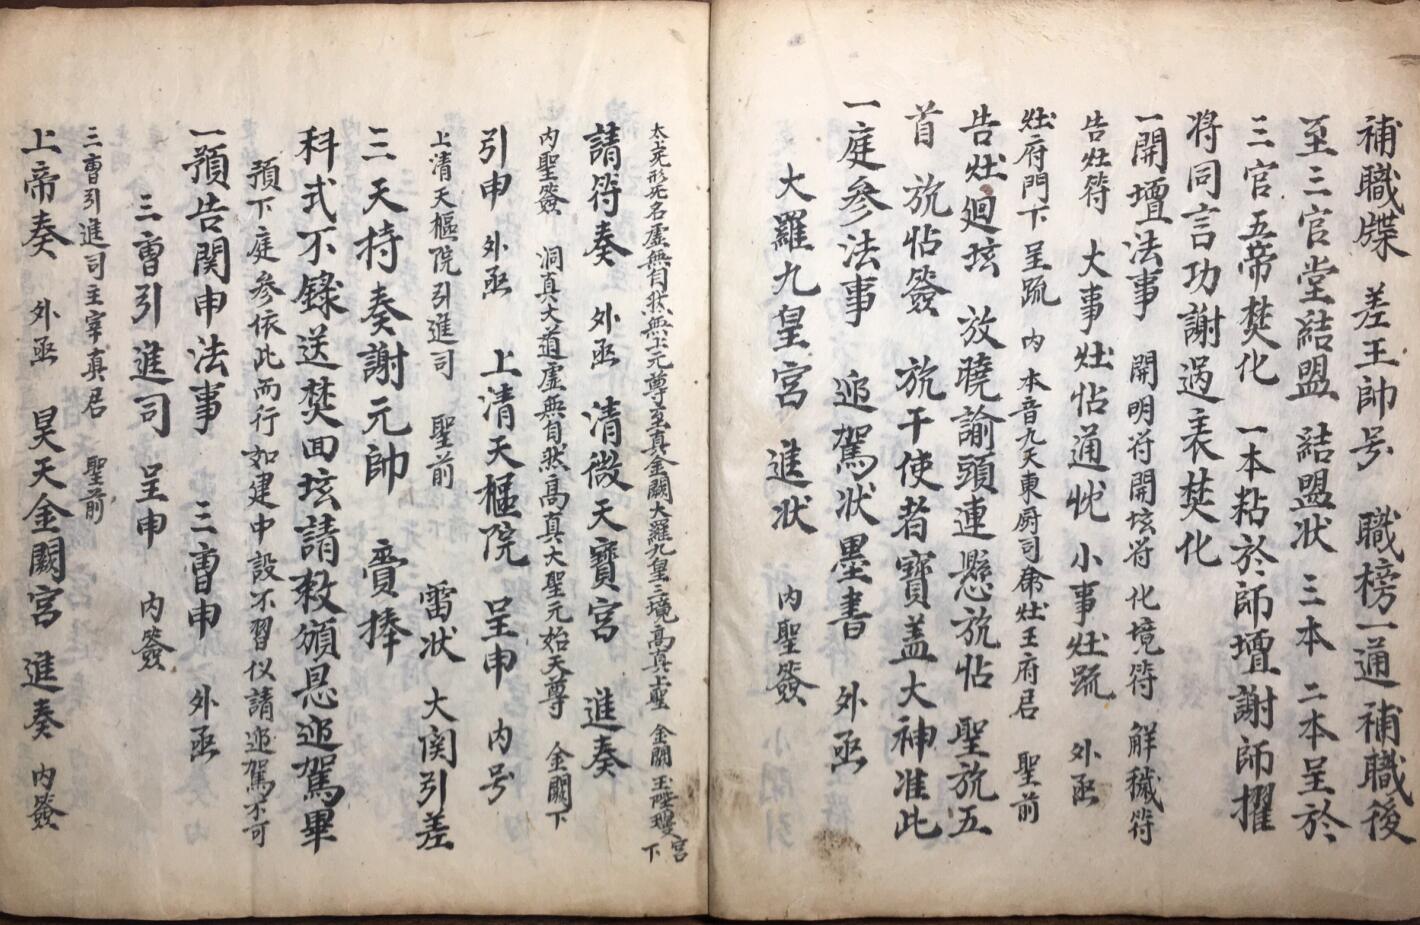 補職牒 差王帥号 職榜一通 補職後
至三官堂結盟 結盟状 三本 二本呈於
三官五帝焚化 一本粘於師壇謝師擢
将同言功謝過表焚化
一開壇法事 開明符開坛符 化境符 解穢符
告灶符 大事灶帖通忱 小事灶疏 外函
灶府門下 呈疏 内 本音九天東厨司命灶王府君 聖前
告灶廻坛 放曉諭頭連懸旂帖 聖旂五
首 旂帖簽 旂干使者寶盖大神准此
一庭參法事 迎駕状 墨書 外函
大羅九皇宮 進状 内聖簽
太上无形无名虛無自然無上元尊至真金闕大羅九皇三境高真上聖 金闕玉陛墀宮下
請符奏 外函 清微天寶宮 進奏
内聖簽 洞真大道虛無自然高真大聖元始天尊 金闕下
引申 外函 上清天樞院 呈申 内号
上清天樞院引進司 聖前 雷状 大関引差
三天持奏謝元帥 賫捧
科式不錄送焚回坛請赦頒恩迎駕畢
預下庭參依此而行如建中設不習仪請迎駕不可
一預告関申法事 三曹申 外函
三曹引進司 呈申 内簽
三曹引進司主宰真君 聖前
上帝奏 外函 昊天金闕宮 進奏 内簽